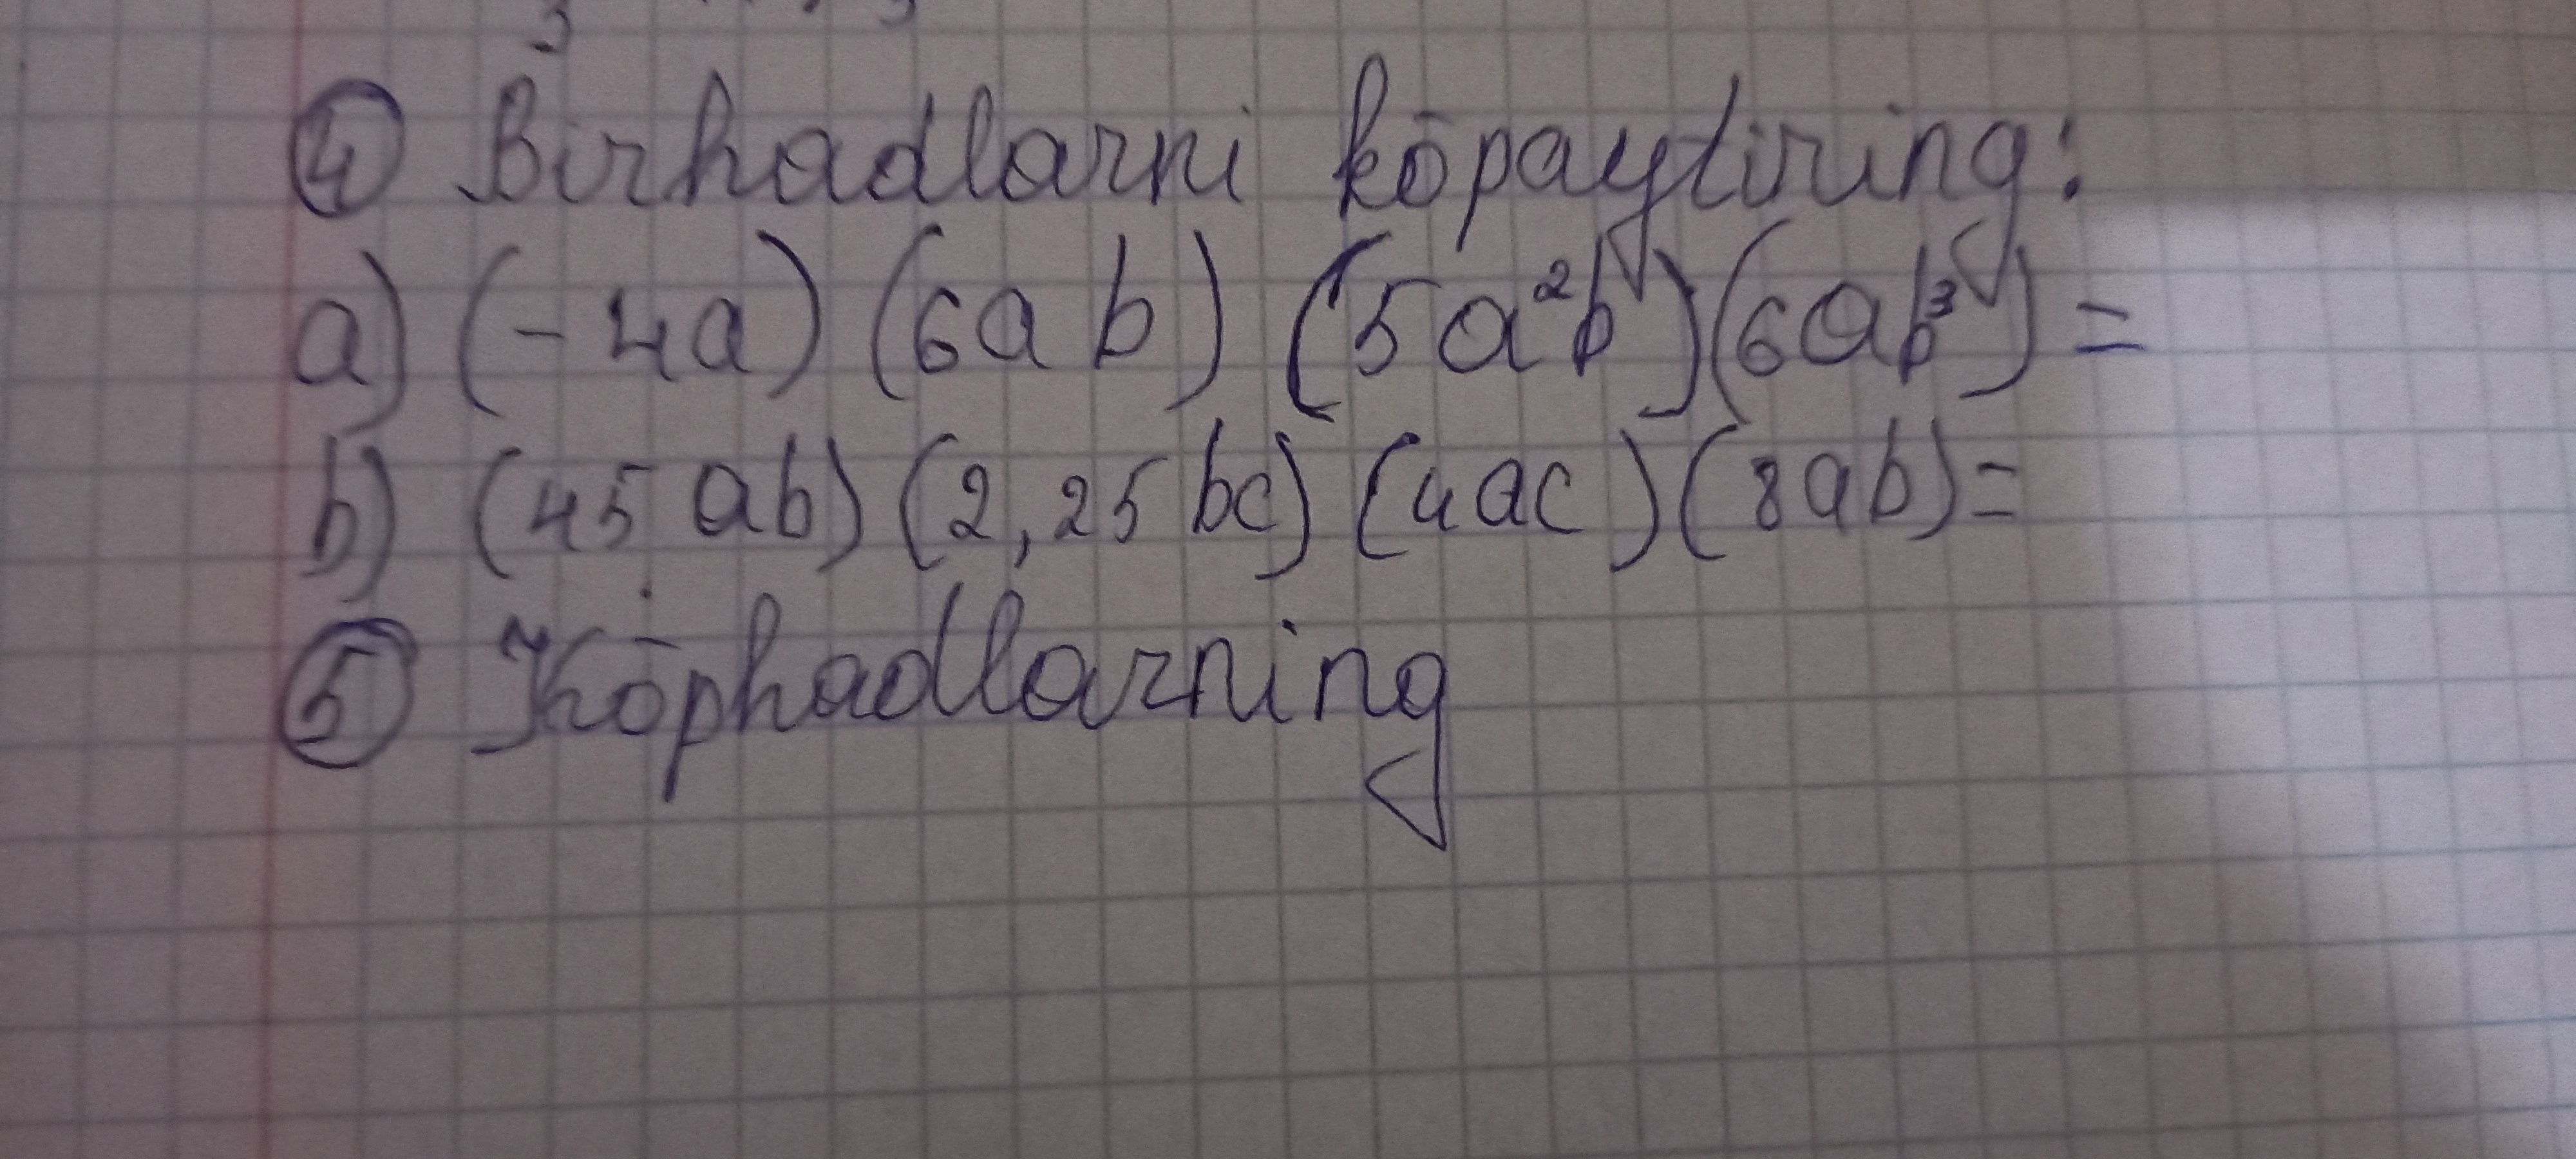 ④ Birhadlarni kōpaytiring:
a) (-4a) (6ab) (5a²b)(6ab³) =
b) (45ab) (2,25bc) (4ac) (8ab)=
⑤ Kōphadlarning